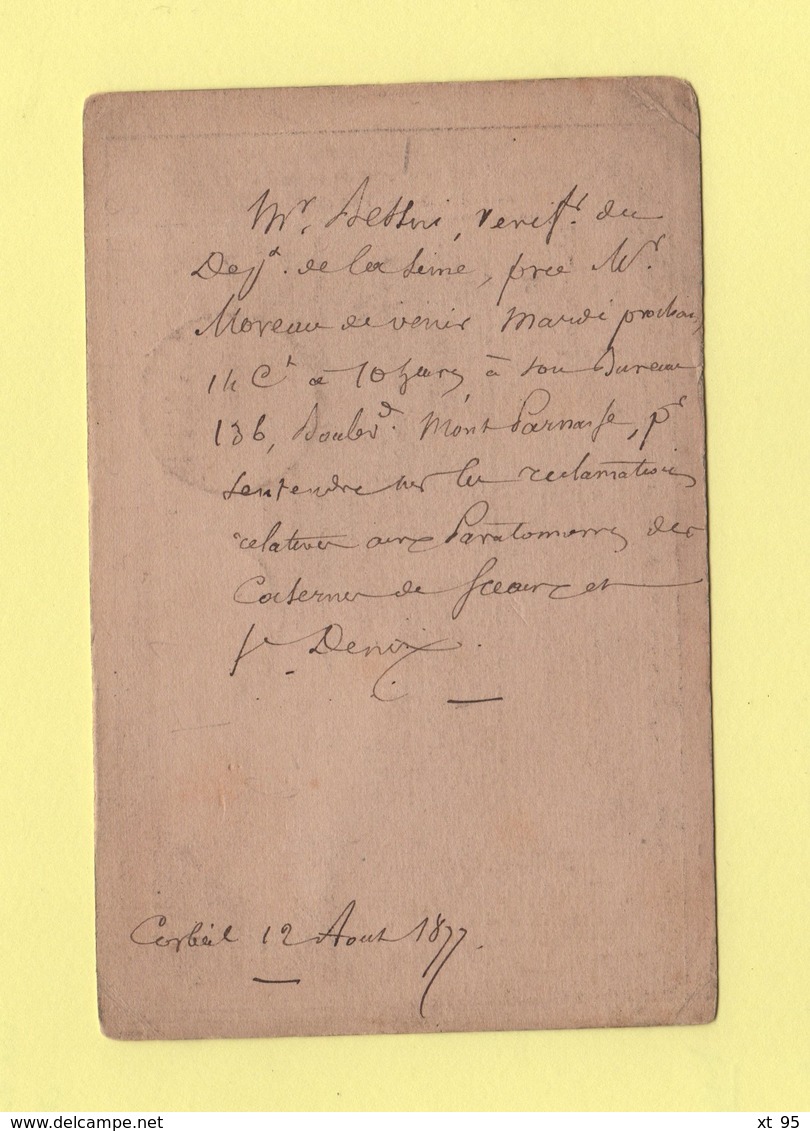 Mr. , verifr. du
Dept. de la Seine, prie Mr.
Moreau de venir Mardi prochain,
14 Ct à 10 heures à son Bureau
136, Boulevd. Mont Parnasse, pr
s'entendre sur les reclamations
relatives aux Paratonnerres des
Casernes de Sceaux et
St Denis.
Corbeil 12 Aout 1877.
xt 95